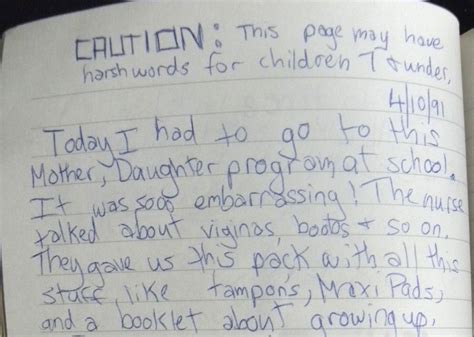 CAUTION: This page may have
harsh words for children 7 & under.
4/10/91
Today I had to go to this
Mother, Daughter program at school.
It was sooo embarrassing! The nurse
talked about viginas, boobs & so on.
They gave us this pack with all this
stuff, like tampons, Maxi Pads,
and a booklet about growing up.